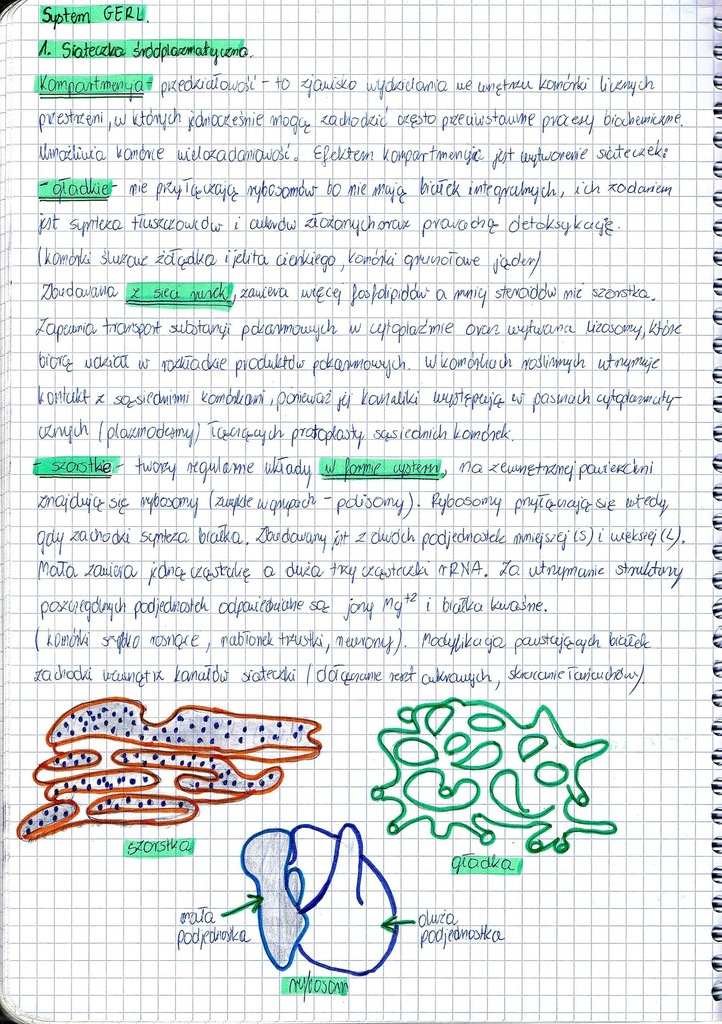 System GERL.
1. Siateczka śródplazmatyczna.
Kompartmencja - przedziałowość - to zjawisko wydzielania we wnętrzu komórki licznych
przestrzeni, w których jednocześnie mogą zachodzić często przeciwstawne procesy biochemiczne.
Umożliwia komórce wielozadaniowość. Efektem kompartmencji jest wytworzenie siateczek:
- gładkie - nie przyłączają rybosomów bo nie mają białek integralnych, ich zadaniem
jest synteza tłuszczowców i cukrów złożonych oraz prowadzą detoksykację.
(komórki śluzowe żołądka i jelita cienkiego, komórki gruczołowe jąder)
Zbudowana z sieci rurek, zawiera więcej fosfolipidów a mniej steroidów niż szorstka.
Zapewnia transport substancji pokarmowych w cytoplaźmie oraz wytwarza lizosomy, które
biorą udział w rozkładzie produktów pokarmowych. W komórkach roślinnych utrzymuje
kontakt z sąsiednimi komórkami, ponieważ jej kanaliki występują w pasmach cytoplazmaty-
cznych (plazmodesmy) łączących protoplasty sąsiednich komórek.
- szorstkie - tworzy regularne układy w formie cystern, na zewnętrznej powierzchni
znajdują się rybosomy (zwykle w grupach - polisomy). Rybosomy przyłączają się wtedy,
gdy zachodzi synteza białka. Zbudowany jest z dwóch podjednostek mniejszej (S) i większej (L).
Mała zawiera jedną cząstekę a duża trzy cząsteczki rRNA. Za utrzymanie struktury
poszczególnych podjednostek odpowiedzialne są jony Mg+2 i białka kwaśne.
(komórki szybko rosnące, nabłonek trzustki, neurony). Modyfikacja powstających białek
zachodzi wewnątrz kanałów siateczki (dołączanie reszt cukrowych, skracanie łańcuchów).
szorstka
gładka
mała
podjednostka
duża
podjednostka
rybosom